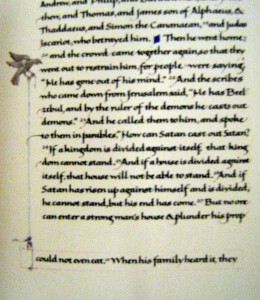 drew, and Philip, and
thew, and Thomas, and James son of Alphaeus, &
Thaddaeus, and Simon the Cananaean, 19 and Judas
Iscariot, who betrayed him. Then he went home;
20 and the crowd came together again, so that they
went out to restrain him, for people were saying,
"He has gone out of his mind." 22 And the scribes
who came down from Jerusalem said, "He has Beel-
zebul, and by the ruler of the demons he casts out
demons." 23 And he called them to him, and spoke
to them in parables, "How can Satan cast out Satan?
24 If a kingdom is divided against itself, that king
dom cannot stand. 25 And if a house is divided against
itself, that house will not be able to stand. 26 And if
Satan has risen up against himself and is divided,
he cannot stand, but his end has come. 27 But no one
can enter a strong man's house & plunder his prop
could not even eat. 21 When his family heard it, they